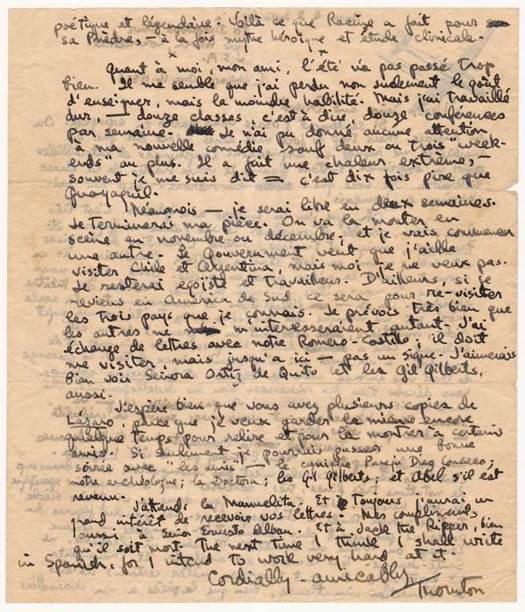 poétique et légendaire. Voilà ce que Racine a fait pour
sa Phèdre, — à la fois mythe héroïque et étude clinicale.
Quant à moi, mon ami, l'été n'a pas passé trop
bien. Il me semble que j'ai perdu non seulement le goût
d'enseigner, mais la moindre habilité. Mais j'ai travaillé
dur, — douze classes, c'est à dire, douze conférences
par semaine. Je n'ai pu donné aucune attention
à ma nouvelle comédie sauf deux ou trois "week-
ends" au plus. Il a fait une chaleur extrême, —
souvent je me suis dit — c'est dix fois pire que
Guayaquil.
Néanmois — je serai libre en deux semaines.
Je terminerai ma pièce. On va la monter en
scène en novembre ou décembre; et je vais commencer
une autre. Le Government veut que j'aille
visiter Chile et Argentina, mais moi je ne veux pas.
Je resterai egoiste et travailleur. D'ailleurs, si je
reviens en América de Sud ce sera pour re-visiter
les trois pays que je connais. Je prévois très bien que
les autres ne m'interesseraient autant. J'ai
échangé de lettres avec notre Romero-Castillo; il doit
me visiter, mais jusqu'a ici — pas un signe. J'aimerais
bien voir Señora Ortiz de Quito et les Gil Gilberts,
aussi.
J'espère bien que vous avez plusieurs copies de
Lázaro, parce que je veux garder la mienne encore
quelque temps pour relire et pour la montrer à certains
amis. Si seulement je pourrais passer une bonne
soirée avec "les amis" — le cynique Pareja Diez Canseco;
notre archéologue; la Doctora; los Gil Gilberts; et Abel s'il est
revenu.
J'attends la Manuelita. Et toujours j'aurai un
grand intérêt de recevoir vos lettres. Mes compliments,
aussi, à Señor Ernesto Alban. Et à Jack the Ripper, bien
qu'il soit mort. The next time I think I shall write
in Spanish, for I intend to work very hard at it.
Cordially — amicably
Thornton